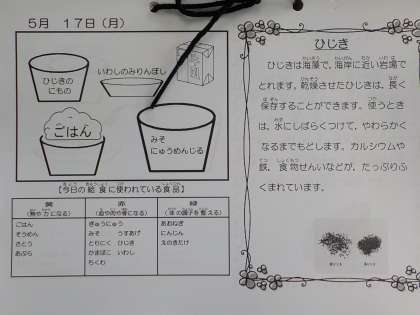 5月　17日（月）
ひじきの
にもの
いわしのみりんぼし
ごはん
みそ
にゅうめんじる
【今日の給食に使われている食品】
黄
（熱や力になる）
赤
（血や肉や骨になる）
緑
（体の調子を整える）
ごはん
そうめん
さとう
あぶら
ぎゅうにゅう
みそ　うすあげ
とりにく　ひじき
かまぼこ　いわし
ちくわ
あおねぎ
にんじん
えのきたけ
ひじき
ひじきは海藻で、海岸に近い岩場で
とれます。乾燥させたひじきは、長く
保存することができます。使うとき
は、水にしばらくつけて、やわらかく
なるまでもどします。カルシウムや
鉄、食物せんいなどが、たっぷりふ
くまれています。